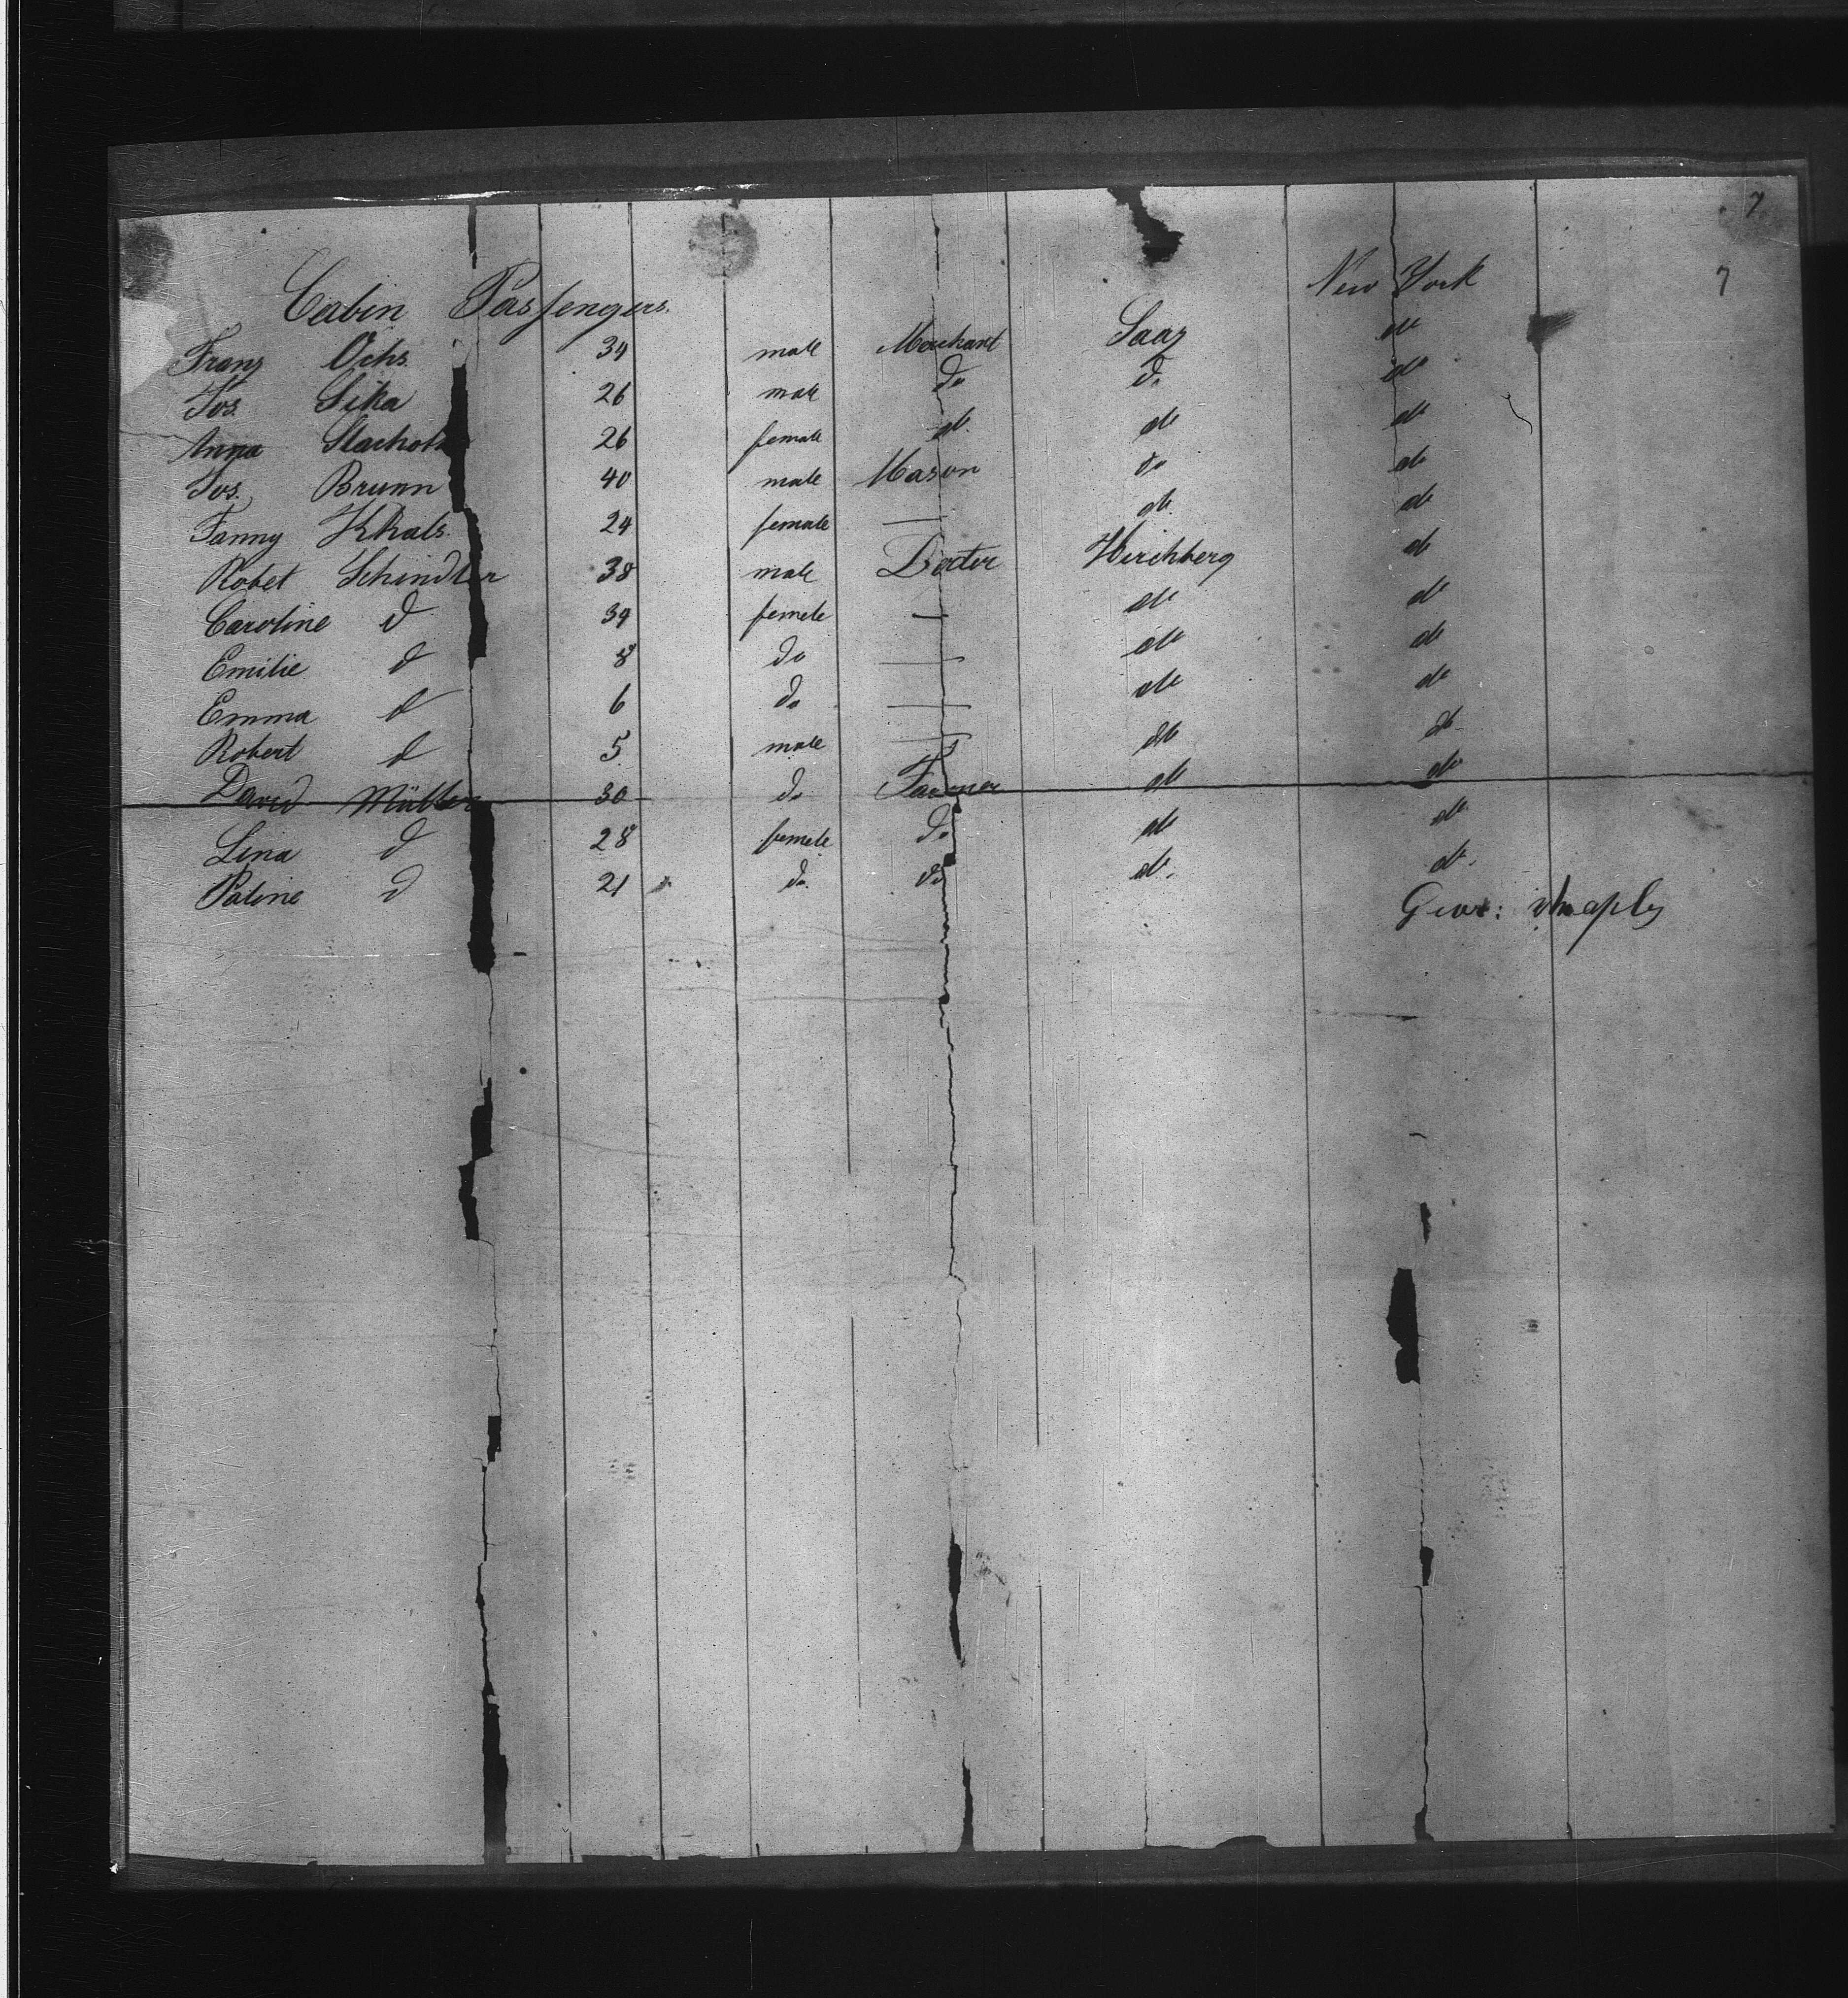 7
New York 7
Cabin Passengers.
Franz Ochs 34 male Merchant Saaz do
Jos. Sika 26 male do do do
Anna 26 female do do do
Jos. Brunn 40 male Mason do do
Fanny Khals. 24 female — do do
Robet Schindler 38 male Docter Hirchberg do
Caroline d 34 female — do do
Emilie d 8 do — do do
Emma d 6 do — do do
Robert d 5 male — do do
David Müller 30 do Farmer do do
Lina d 28 female do do do
Paline d 21 do do do do